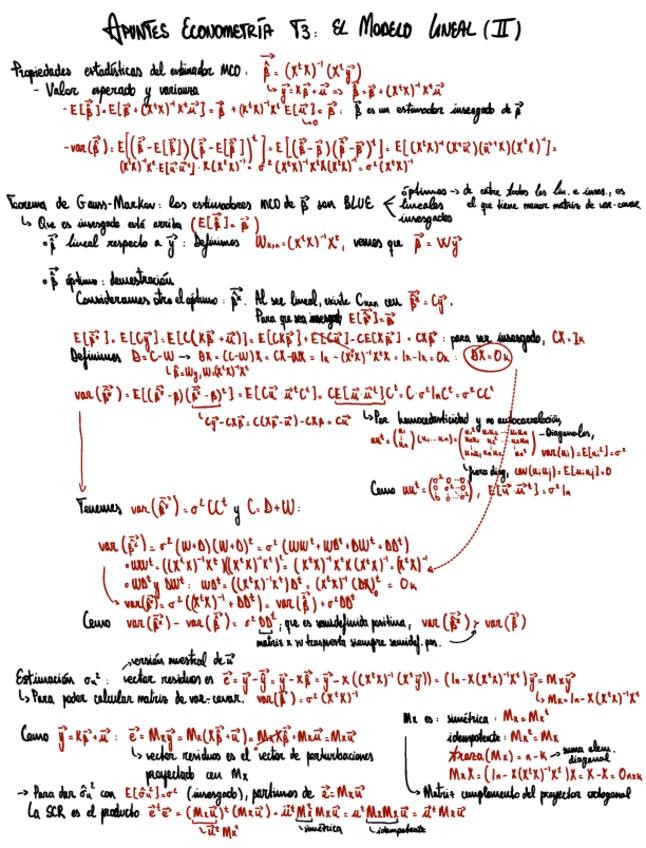 APUNTES ECONOMETRÍA T3: EL MODELO LINEAL (II)
Propiedades estadísticas del estimador MCO. β̂ = (XᵗX)⁻¹(Xᵗy⃗)
- Valor esperado y varianza ↳ y⃗ = Xβ⃗+u⃗ => β̂ = β⃗+(XᵗX)⁻¹Xᵗu⃗
- E[β̂] = E[β⃗+(XᵗX)⁻¹Xᵗu⃗] = β⃗+(XᵗX)⁻¹Xᵗ E[u⃗] = β⃗. β̂ es un estimador insesgado de β⃗
↳0
- var(β̂) = E[(β̂-E[β̂])(β̂-E[β̂])ᵗ] = E[(β̂-β⃗)(β̂-β⃗)ᵗ] = E[(XᵗX)⁻¹(Xᵗu⃗)(u⃗ᵗX)(XᵗX)⁻¹] =
(XᵗX)⁻¹Xᵗ·E[u⃗·u⃗ᵗ]·X(XᵗX)⁻¹ = σ²(XᵗX)⁻¹XᵗX(XᵗX)⁻¹ = σ²(XᵗX)⁻¹
Teorema de Gauss-Markov: los estimadores MCO de β⃗ son BLUE
óptimos → de entre todos los lin. e inses., es el que tiene menor matriz de var-covar.
lineales
insesgados
↳ Que es insesgado está arriba (E[β̂] = β⃗)
• β̂ lineal respecto a y⃗: Definimos Wₖₓₙ = (XᵗX)⁻¹Xᵗ, vemos que β̂ = Wy⃗
• β̂ óptimo: demostración
Consideramos otro el óptimo: β̂*. Al ser lineal, existe Cₖₓₙ con β̂* = Cy⃗.
Para que sea insesgado E[β̂*] = β⃗
E[β̂*] = E[Cy⃗] = E[C(Xβ⃗+u⃗)] = E[CXβ⃗] + E[Cu⃗] = CE[Xβ⃗] = CXβ⃗: para ser insesgado, CX = Iₖ
Definimos D = C-W → DX = (C-W)X = CX-WX = Iₖ-(XᵗX)⁻¹XᵗX = Iₖ-Iₖ = 0ₖ: DX = 0ₖ
↳ β̂ = Wy, W=(XᵗX)⁻¹Xᵗ
var(β̂*) = E[(β̂*-β)(β̂*-β)ᵗ] = E[Cu⃗·u⃗ᵗCᵗ] = CE[u⃗·u⃗ᵗ]Cᵗ = C·σ²IₙCᵗ = σ²CCᵗ
↳ Cy⃗-CXβ = C(Xβ+u⃗)-CXβ = Cu⃗
↳ Por homocedasticidad y no autocorrelación,
- Diagonales, var(uᵢ) = E[uᵢ²] = σ²
cov(uᵢuⱼ) = E[uᵢuⱼ] = 0
Como E[u⃗·u⃗ᵗ] = σ²Iₙ
Tenemos var(β̂*) = σ²CCᵗ y C = D+W:
var(β̂*) = σ²(W+D)(W+D)ᵗ = σ²(WWᵗ+WDᵗ+DWᵗ+DDᵗ)
• WWᵗ = ((XᵗX)⁻¹Xᵗ)((XᵗX)⁻¹Xᵗ)ᵗ = (XᵗX)⁻¹XᵗX(XᵗX)⁻¹ = (XᵗX)⁻¹
• WDᵗ y DWᵗ: WDᵗ = ((XᵗX)⁻¹Xᵗ)Dᵗ = (XᵗX)⁻¹(DX)ᵗ = 0ₖ
var(β̂*) = σ²((XᵗX)⁻¹ + DDᵗ) = var(β̂) + σ²DDᵗ
Como var(β̂*) - var(β̂) = σ²DDᵗ, que es semidefinida positiva, var(β̂*) ≥ var(β̂)
matriz x su traspuesta siempre semidef. pos.
versión muestral de u⃗
Estimación σᵤ²: vector residuos es e⃗ = y⃗-ŷ = y⃗-Xβ̂ = y⃗-X((XᵗX)⁻¹(Xᵗy⃗)) = (Iₙ-X(XᵗX)⁻¹Xᵗ)y⃗ = Mₓy⃗
↳ Para poder calcular matriz de var-covar. var(β̂) = σ²(XᵗX)⁻¹ ↳ Mₓ = Iₙ-X(XᵗX)⁻¹Xᵗ
Como y⃗ = Xβ⃗+u⃗: e⃗ = Mₓy⃗ = Mₓ(Xβ⃗+u⃗) = MₓXβ⃗+Mₓu⃗ = Mₓu⃗
↳ vector residuos es el vector de perturbaciones
proyectado con Mₓ
Mₓ es: simétrica: Mₓ = Mₓᵗ
idempotente: Mₓ² = Mₓ
traza(Mₓ) = n-k → suma elem. diagonal
MₓX = (Iₙ-X(XᵗX)⁻¹Xᵗ)X = X-X = 0ₙₓₖ
→ Matriz complemento del proyector ortogonal
→ Para dar σ̂ᵤ² con E[σ̂ᵤ²] = σ² (insesgado), partimos de e⃗ = Mₓu⃗
La SCR es el producto e⃗ᵗe⃗ = (Mₓu⃗)ᵗ(Mₓu⃗) = u⃗ᵗMₓᵗMₓu⃗ = u⃗ᵗMₓMₓu⃗ = u⃗ᵗMₓu⃗
↳ u⃗ᵗMₓᵗ ↳ simétrica ↳ idempotente